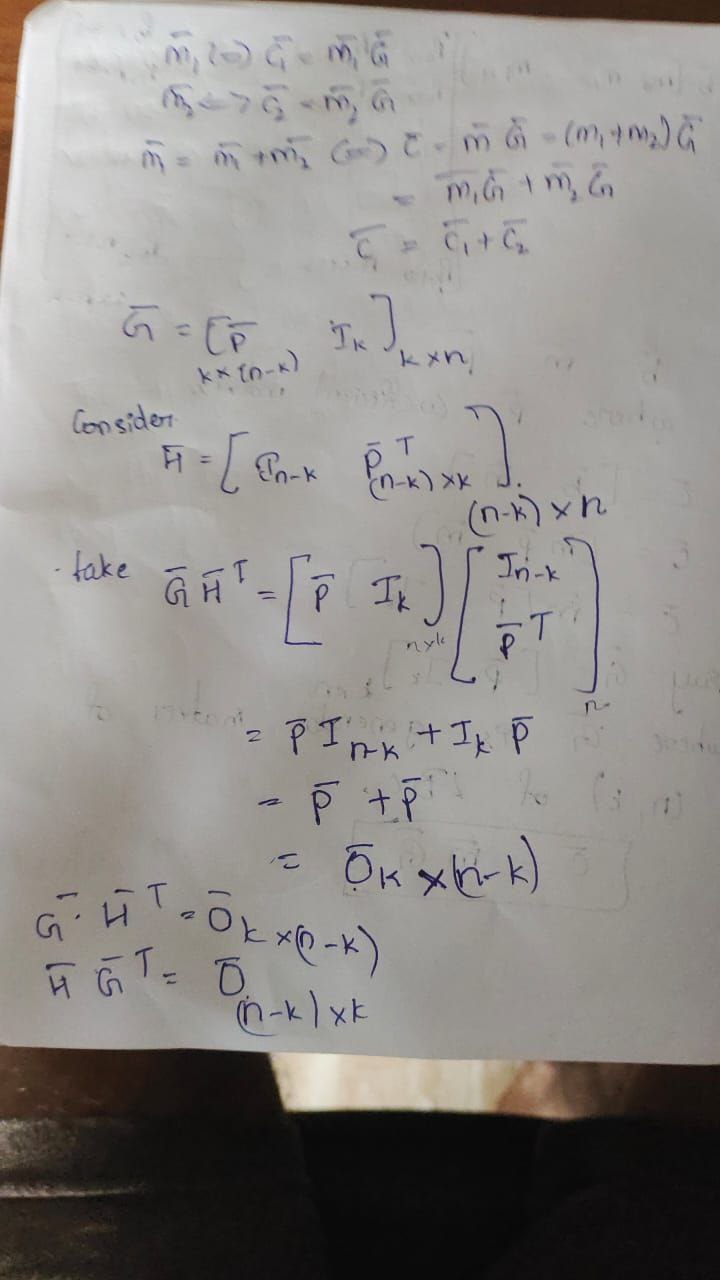 m̄₁ <=> C̄₁ = m̄₁ Ḡ
m̄₂ <-> C̄₂ = m̄₂ Ḡ
m̄ = m̄₁ + m̄₂ <=> C̄ = m̄ Ḡ = (m₁ + m₂) Ḡ
= m̄₁Ḡ + m̄₂ Ḡ
C̄ = C̄₁ + C̄₂
Ḡ = [P̄ I_k]
k×(n-k) k×n
Consider
H̄ = [I_n-k P̄^T]
(n-k)×k
(n-k)×n
take Ḡ H̄^T = [P̄ I_k] [I_n-k
P̄^T]
n×k
n
= P̄ I_n-k + I_k P̄
= P̄ + P̄
= Ō_k×(n-k)
Ḡ. H̄^T = Ō_k×(n-k)
H̄ Ḡ^T = Ō
(n-k)×k